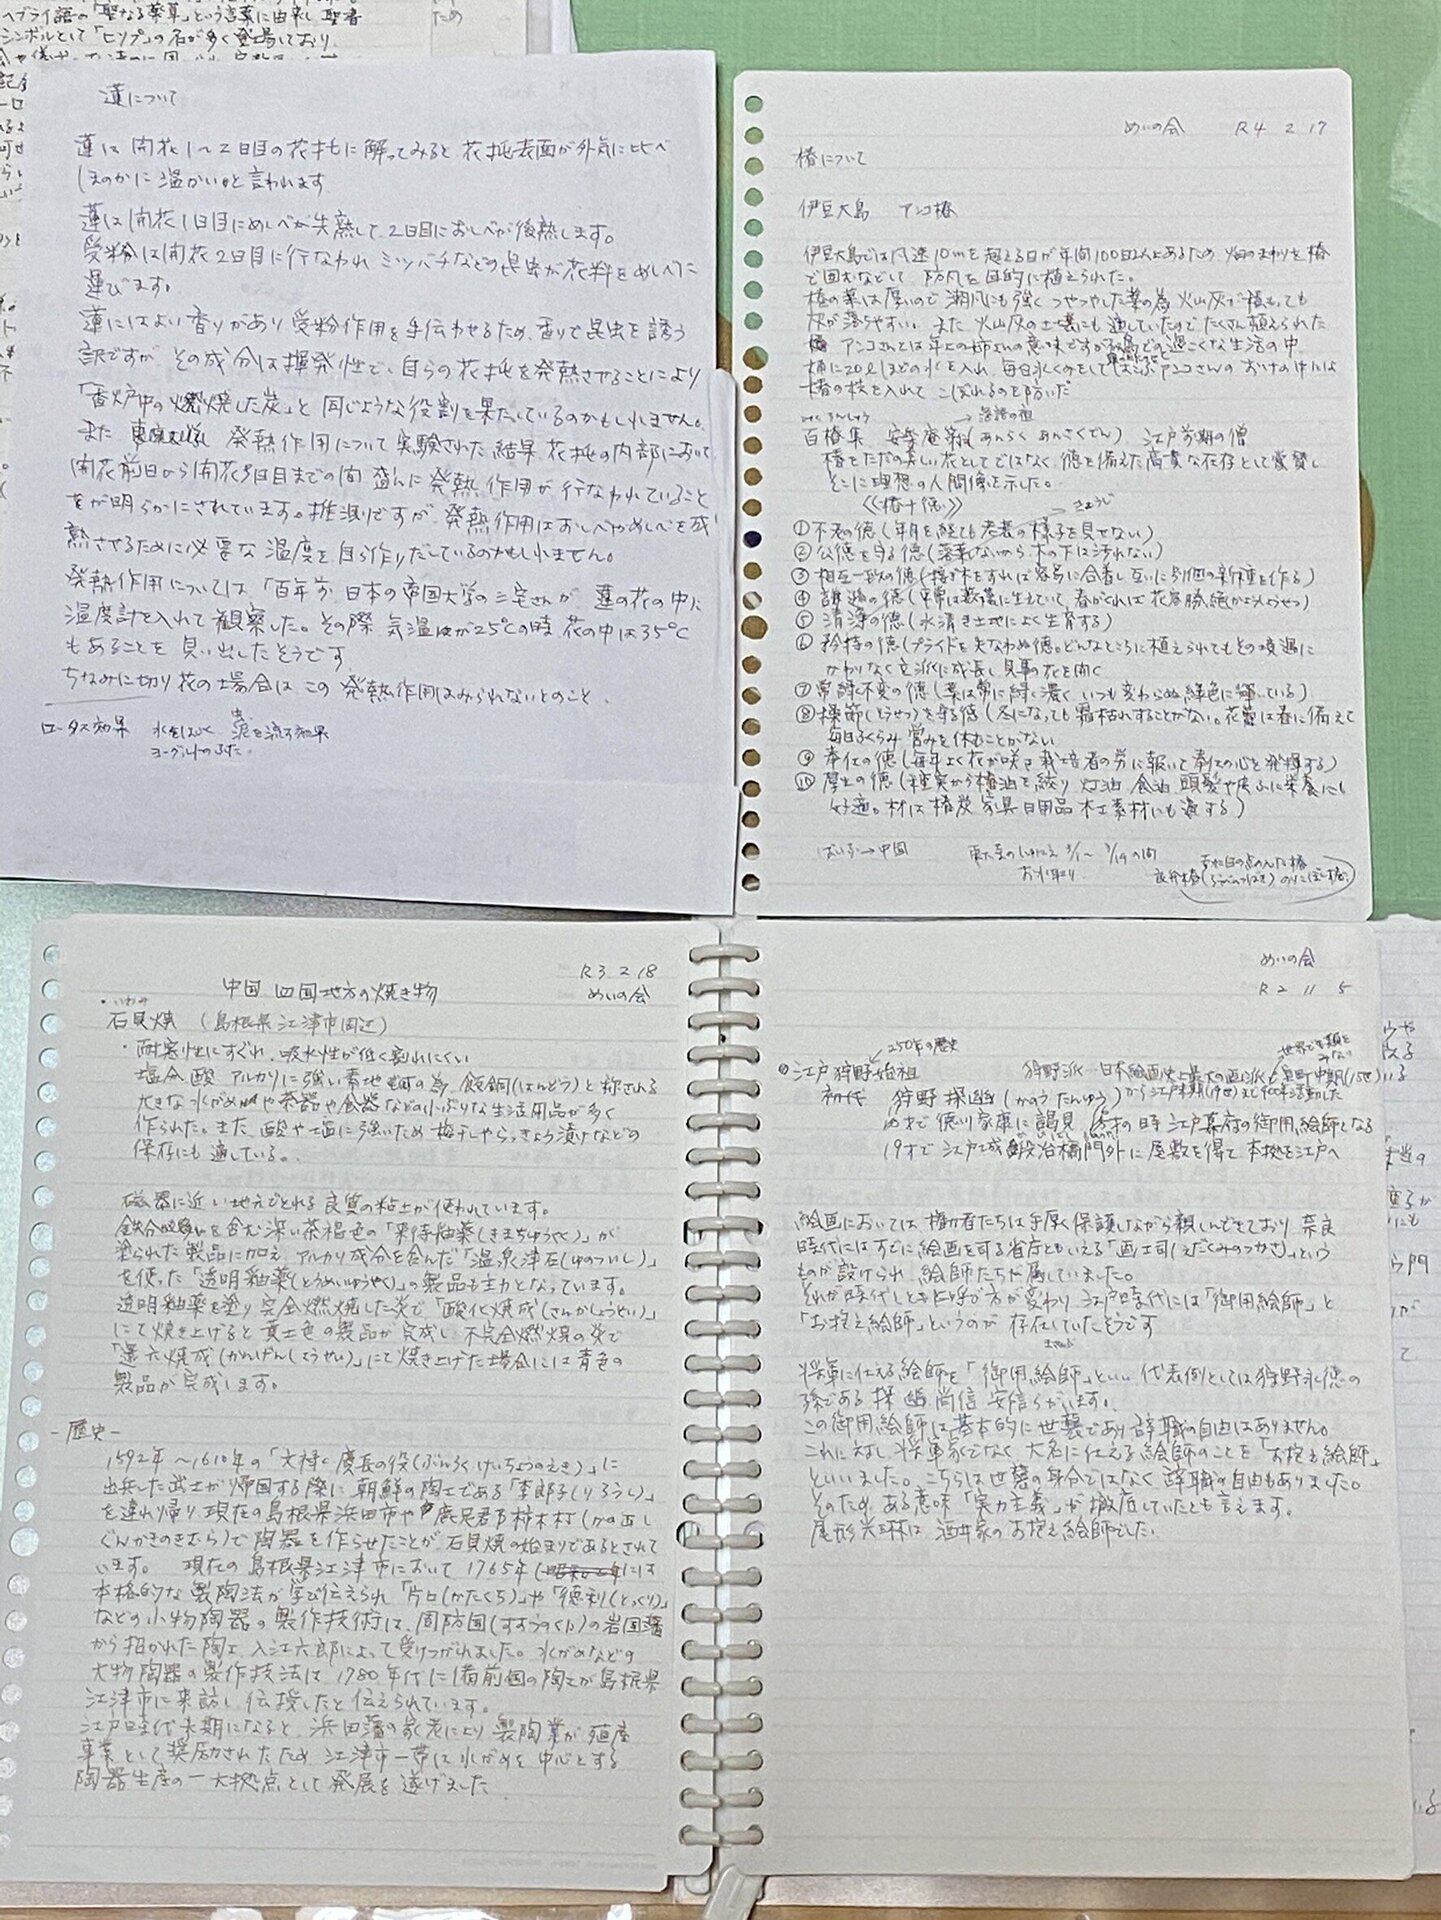 ヘブライ語の「聖なる薬草」という言葉に由来し 聖書
シンボルとして「ヒソプ」の名が多く登場しており
ため
蓮について
蓮は 開花1〜2日目の花托に触ってみると 花托表面が外気に比べ
ほのかに温かいと言われます
蓮は開花1日目にめしべが先熟して 2日目におしべが後熟します。
受粉は開花2日目に行なわれ ミツバチなどの昆虫が花粉をめしべに
運びます。
蓮にはよい香りがあり 受粉作用を手伝わせるため 香りで昆虫を誘う
訳ですが その成分は揮発性で、自らの花托を発熱させることにより
「香炉中の燃焼した炭」と同じような役割を果たしているのかもしれません。
また 発熱作用について実験された結果 花托の内部において
開花前日から開花3日目までの間 盛んに発熱作用が行なわれていること
が明らかにされています。推測ですが 発熱作用はおしべやめしべを成
熟させるために必要な温度を自ら作りだしているのかもしれません。
発熱作用については、「百年前 日本の帝国大学の三宅さんが 蓮の花の中に
温度計を入れて観察した。その際 気温が25℃の時 花の中は35℃
もあることを見い出したそうです
ちなみに切り花の場合は この発熱作用はみられないとのこと。
ロータス効果 水をはじく 泥を流す効果
ヨーグルトのふた。
めいの会 R4 2 17
椿について
伊豆大島 アンコ椿
伊豆大島では風速10mを超える日が年間100日以上あるため 畑のまわりを椿
で囲むなどして 防風を目的に植えられた。
椿の葉は厚いので 潮風にも強く つやつやした葉の為 火山灰が積もっても
灰が落ちやすい。また 火山灰の土壌にも適していたので たくさん植えられた
アンコさんとは年上の姉さんの意味ですが 離島での過ごくな生活の中
桶に20ℓほどの水を入れ 毎日水くみをして 頭の上にのせて はこぶアンコさんの おけの中には
椿の枝を入れて こぼれるのを防いだ
→ 落語の祖
百椿集 安楽庵策伝(あんらく あんさくでん) 江戸前期の僧
椿をただの美しい花としてではなく 徳を備えた高貴な存在として愛賛し
そこに理想の人間像を示した。
《椿十徳》 きょうじ
① 不老の徳(年月を経ても老衰の様子を見せない)
② 公徳を守る徳(落葉しないから 木の下は汚れない)
③ 相互一致の徳(接ぎ木をすれば容易に合着し 互いに別個の新種を作る)
④ 謙遜の徳(平常は叢に生えていて 春がくれば 花容勝絶かようしょうぜつ)
⑤ 清浄の徳(水清き土地によく生育する)
⑥ 矜持の徳(プライドを失なわぬ徳。どんなところに植えられてもその境遇に
かかわりなく 立派に成長し 見事な花を開く
⑦ 常緑不変の徳(葉は常に緑濃く いつも変わらぬ緑色に輝いている)
⑧ 操節(とうせつ)を守る徳(冬になっても霜枯れすることがない。花蕾は春に備えて
毎日ふくらみ 営みを休むことがない
⑨ 奉仕の徳(毎年よく花が咲き 栽培者の労に報いて 奉仕の心を発揮する)
⑩ 厚生の徳(種実から椿油を絞り 灯油 食油 頭髪や皮ふに栄養にも
好適。材は椿炭 家具 日用品 木工素材にも適する)
東大寺のしゅにえ 3/1〜3/14の間
お水取り
赤に白の点の入った椿
良弁椿(ろうべんつばき) のりこぼし椿
R3 2 18
中国 四国地方の焼き物 めいの会
いわみ
・石見焼 (島根県江津市周辺)
・耐寒性にすぐれ、吸水性が低く割れにくい
塩分 酸 アルカリに強い素地の為 飯銅(はんどう)と称される
大きな水がめや茶器や食器などの小ぶりな生活用品が多く
作られた。また、酸や塩に強いため 梅干しやらっきょう漬けなどの
保存にも適している。
磁器に近い地元でとれる良質の粘土が使われています。
鉄分を含む深い茶褐色の「来待釉薬(きまちゆうやく)」が
塗られた製品に加え アルカリ成分を含んだ「温泉津石(ゆのついし)」
を使った「透明釉薬(とうめいゆうやく)」の製品も主力となっています。
透明釉薬を塗り 完全燃焼した炎で「酸化焼成(さんかしょうせい)」
にて焼き上げると 黄土色の製品が完成し 不完全燃焼の炎で
「還元焼成(かんげんしょうせい)」にて焼き上げた場合には青色の
製品が完成します。
- 歴史 -
1592年〜1610年の「文禄・慶長の役(ぶんろく けいちょうのえき)」に
出兵した武士が帰国する際に 朝鮮の陶工である「李郎子(りろうし)」
を連れ帰り 現在の島根県浜田市や鹿足郡柿木村(かのあし
ぐんかきのきむら)で 陶器を作らせたことが 石見焼の始まりであるとされて
います。 現在の島根県江津市において 1765年には
本格的な製陶法が伝えられ「片口(かたくち)」や「徳利(とっくり)」
などの小物陶器の製作技術は、周防国(すおうのくに)の岩国藩
から招かれた陶工 入江六郎によって受けつがれました。水がめなどの
大物陶器の製作技法は 1780年代に備前国の陶工が島根県
江津市に来訪し 伝授したと伝えられています。
江戸時代末期になると、浜田藩の家老により 製陶業が殖産
事業として奨励されたため 江津市一帯は水がめを中心とする
陶器生産の一大拠点として発展を遂げました
めいの会
R2 11 5
250年の歴史
世界で類をみない
江戸狩野始祖 狩野派 日本絵画史上最大の画派 室町中期(15世)
初代 狩野探幽(かのうたんゆう) から江戸末期(19世)まで400年活動した
10才で徳川家康に謁見 16才の時 江戸幕府の御用絵師となる
19才で江戸城鍛冶橋門外に屋敷を得て 本拠を江戸へ
絵画においては 権力者たちは手厚く保護しながら親しんできており 奈良
時代にはすでに絵画を司る省庁ともいえる「画工司(えだくみのつかさ)」という
ものが設けられ 絵師たちが属していました。
それが時代とともに呼び方が変わり 江戸時代には「御用絵師」と
「お抱え絵師」というのが 存在していたそうです
将軍に仕える絵師を「御用絵師」といい 代表例としては狩野永徳の
孫である 探幽 尚信 安信らがいます。
この御用絵師は 基本的に世襲であり 辞職の自由はありません。
これに対し 将軍家でなく 大名に仕える絵師のことを「お抱え絵師」
といいました。こちらは世襲の身分ではなく 辞職の自由もありました。
そのため ある意味「実力主義」が徹底していたとも言えます。
尾形光琳は 酒井家のお抱え絵師でした。